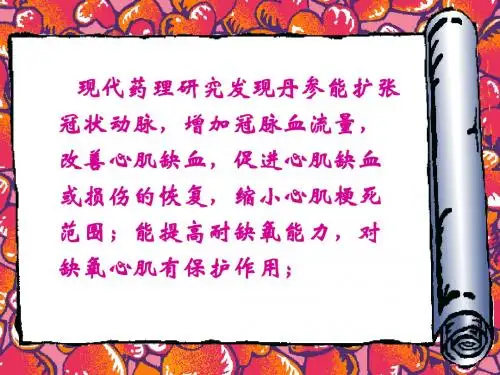 现代药理研究发现丹参能扩张
冠状动脉，增加冠脉血流量，
改善心肌缺血，促进心肌缺血
或损伤的恢复，缩小心肌梗死
范围；能提高耐缺氧能力，对
缺氧心肌有保护作用；